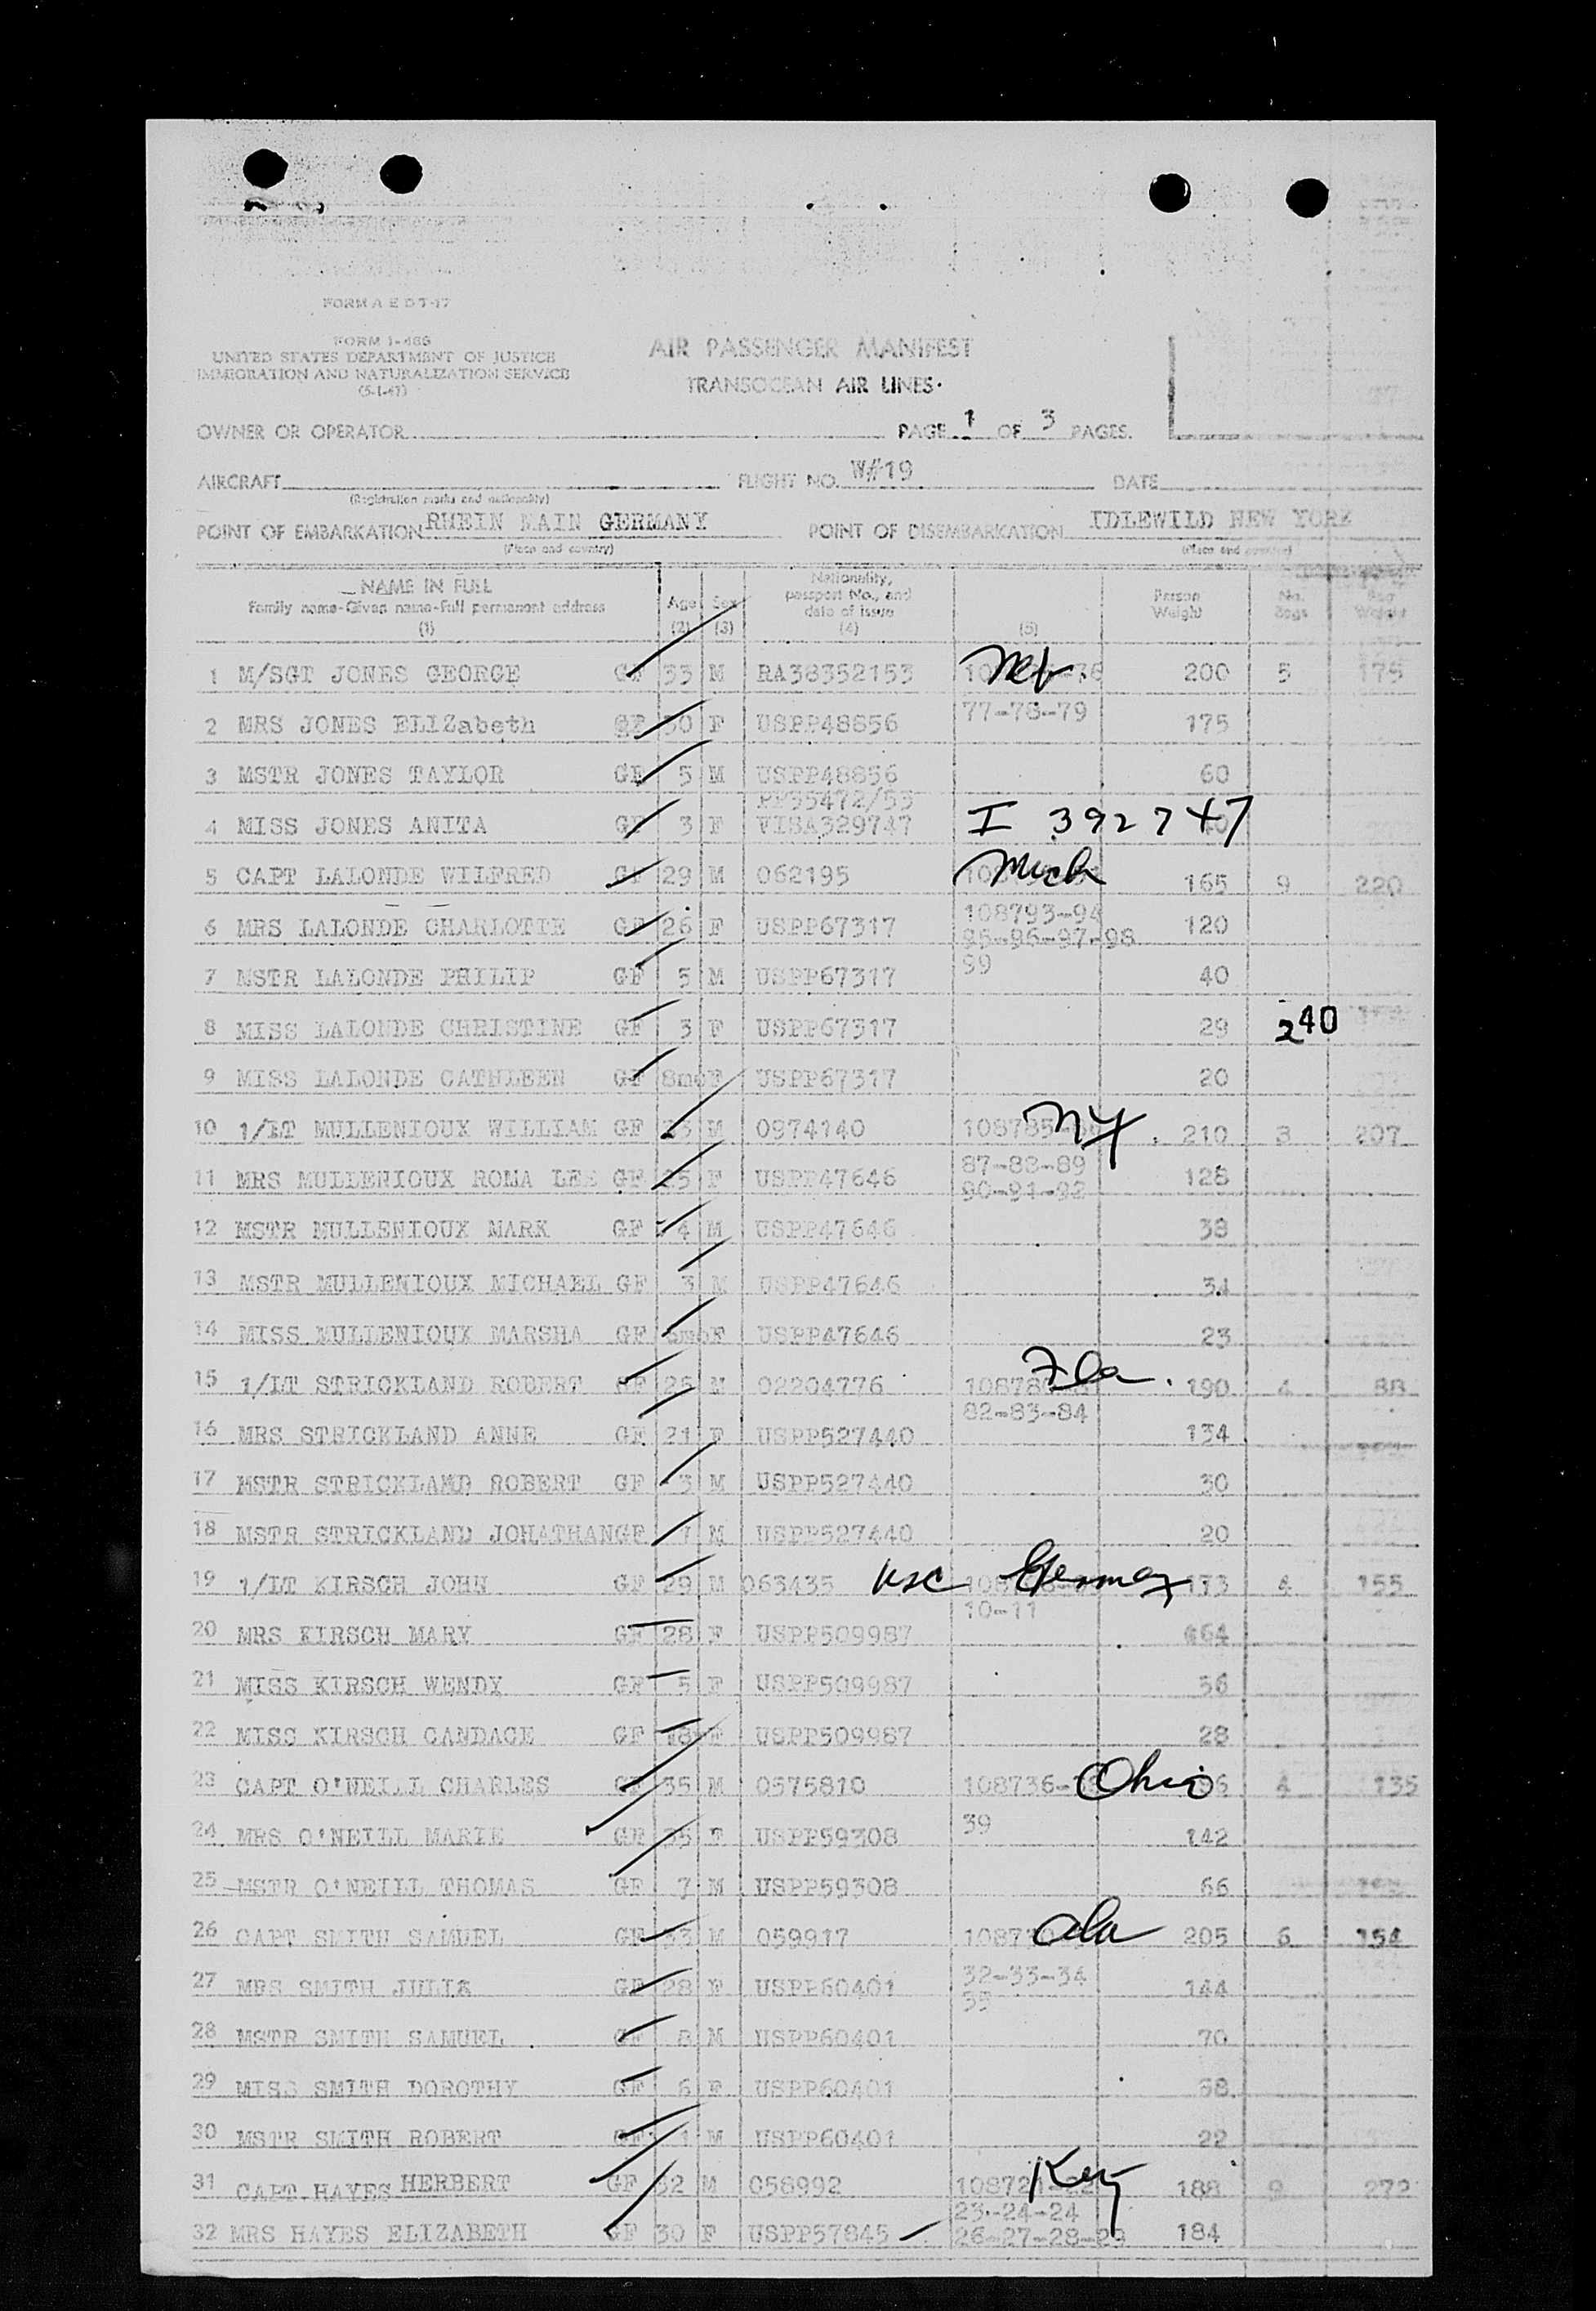 FORM A E D T-17
FORM I-466
UNITED STATES DEPARTMENT OF JUSTICE
IMMIGRATION AND NATURALIZATION SERVICE
(5-1-47)
AIR PASSENGER MANIFEST
TRANSOCEAN AIR LINES.
OWNER OR OPERATOR PAGE 1 OF 3 PAGES.
AIRCRAFT FLIGHT NO. W#19 DATE
(Registration marks and nationality)
POINT OF EMBARKATION RHEIN MAIN GERMANY POINT OF DISEMBARKATION IDLEWILD NEW YORK
(Place and country) (Place and country)
NAME IN FULL Age Sex Nationality, Person No. Bag
Family name-Given name-Full permanent address passport No., and Weight Bags Weight
date of issue
(1) (2) (3) (4) (5)
1 M/SGT JONES GEORGE GF 33 M RA38352153 200 5 175
2 MRS JONES ELIZabeth GF 30 F USPP48856 77-78-79 175
3 MSTR JONES TAYLOR GF 5 M USPP48856 60
PP55472/53
4 MISS JONES ANITA GF 3 F VISA329747 I 392747
5 CAPT LALONDE WILFRED GF 29 M 062195 Mich 165 9 220
6 MRS LALONDE CHARLOTTE GF 26 F USPP67317 108793-94 120
95-96-97-98
7 MSTR LALONDE PHILIP GF 5 M USPP67317 99 40
8 MISS LALONDE CHRISTINE GF 3 F USPP67317 29 240
9 MISS LALONDE CATHLEEN GF 8mo F USPP67317 20
10 1/LT MULLENIOUX WILLIAM GF M 0974140 108785 NY. 210 3 207
11 MRS MULLENIOUX ROMA LEE GF 25 F USPP47646 87-88-89 128
90-91-92
12 MSTR MULLENIOUX MARK GF 4 M USPP47646 38
13 MSTR MULLENIOUX MICHAEL GF 3 M USPP47646 34
14 MISS MULLENIOUX MARSHA GF F USPP47646 23
15 1/LT STRICKLAND ROBERT GF 25 M 02204776 Fla. 190 4 88
82-83-84
16 MRS STRICKLAND ANNE GF 21 F USPP527440 134
17 MSTR STRICKLAND ROBERT GF 3 M USPP527440 30
18 MSTR STRICKLAND JOHATHAN GF 1 M USPP527440 20
19 1/LT KIRSCH JOHN GF 29 M 063435 USC Germany 173 4 155
10-11
20 MRS KIRSCH MARY GF 28 F USPP509987 164
21 MISS KIRSCH WENDY GF 5 F USPP509987 56
22 MISS KIRSCH CANDACE GF F USPP509987 28
23 CAPT O'NEILL CHARLES GF 35 M 0575810 108736- Ohio 4 135
24 MRS O'NEILL MARIE GF 35 F USPP59308 39 142
25 MSTR O'NEILL THOMAS GF 7 M USPP59308 66
26 CAPT SMITH SAMUEL GF 33 M 059917 Ala 205 6 154
27 MRS SMITH JULIA GF 28 F USPP60401 32-33-34 144
28 MSTR SMITH SAMUEL GF 8 M USPP60401 70
29 MISS SMITH DOROTHY GF 6 F USPP60401
30 MSTR SMITH ROBERT GF 1 M USPP60401 22
31 CAPT. HAYES HERBERT GF 32 M 058992 Ky 188 9 272
23-24-24
32 MRS HAYES ELIZABETH GF 30 F USPP57845 26-27-28-29 184